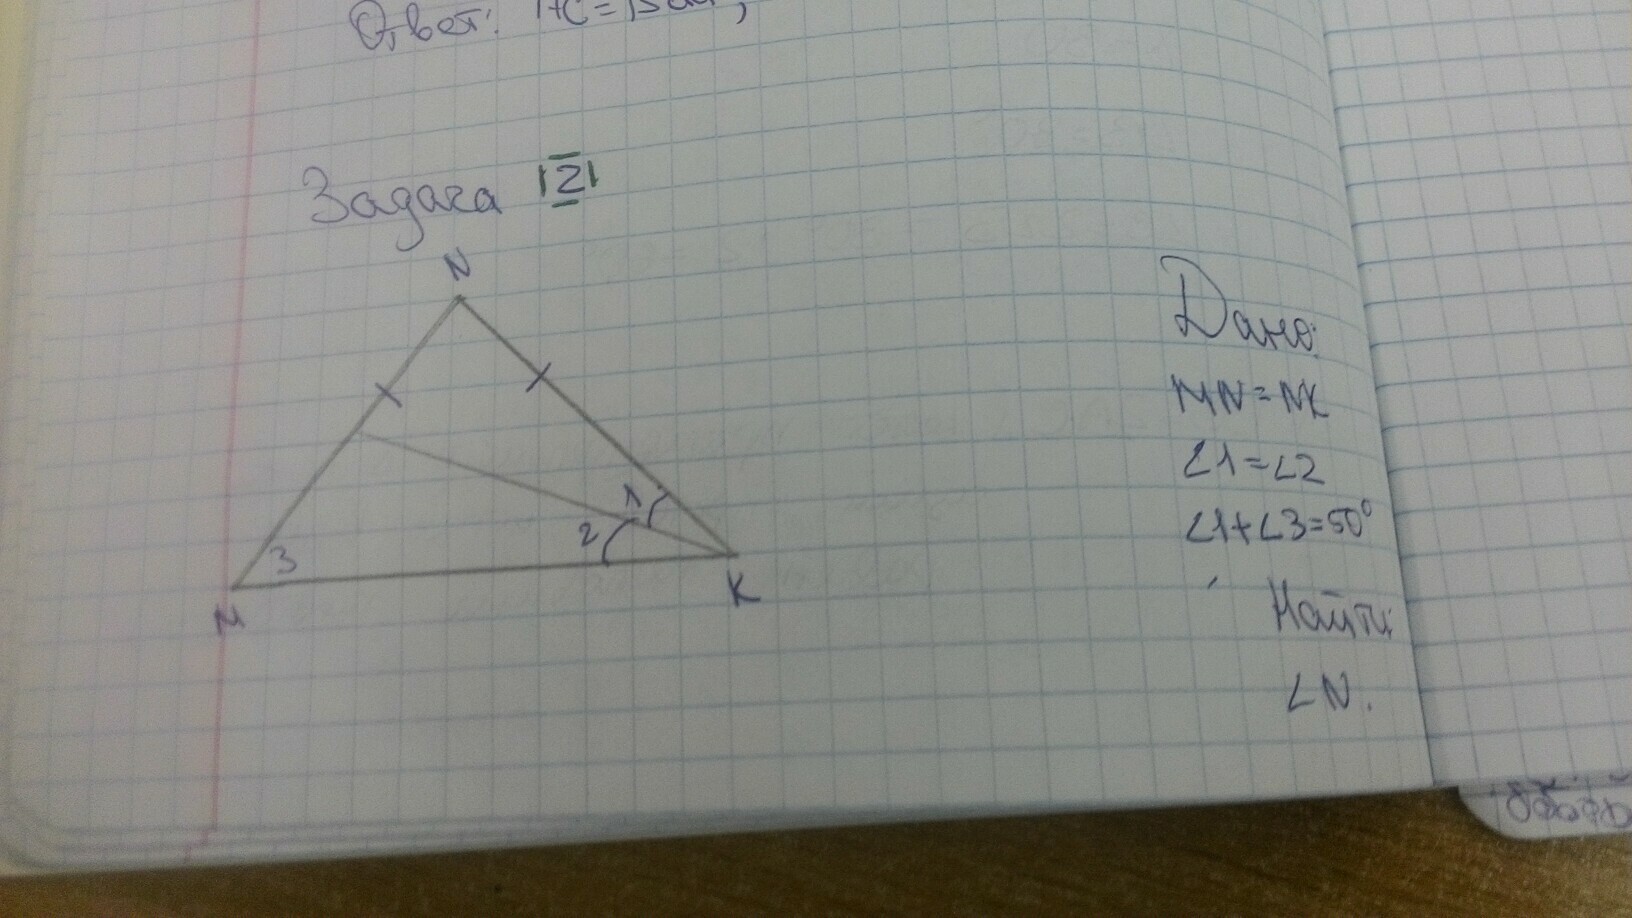 Ответ:
Задача 2
N
1
2
3
M
K
Дано:
MN=NK
∠1=∠2
∠1+∠3=50°
Найти:
∠N.